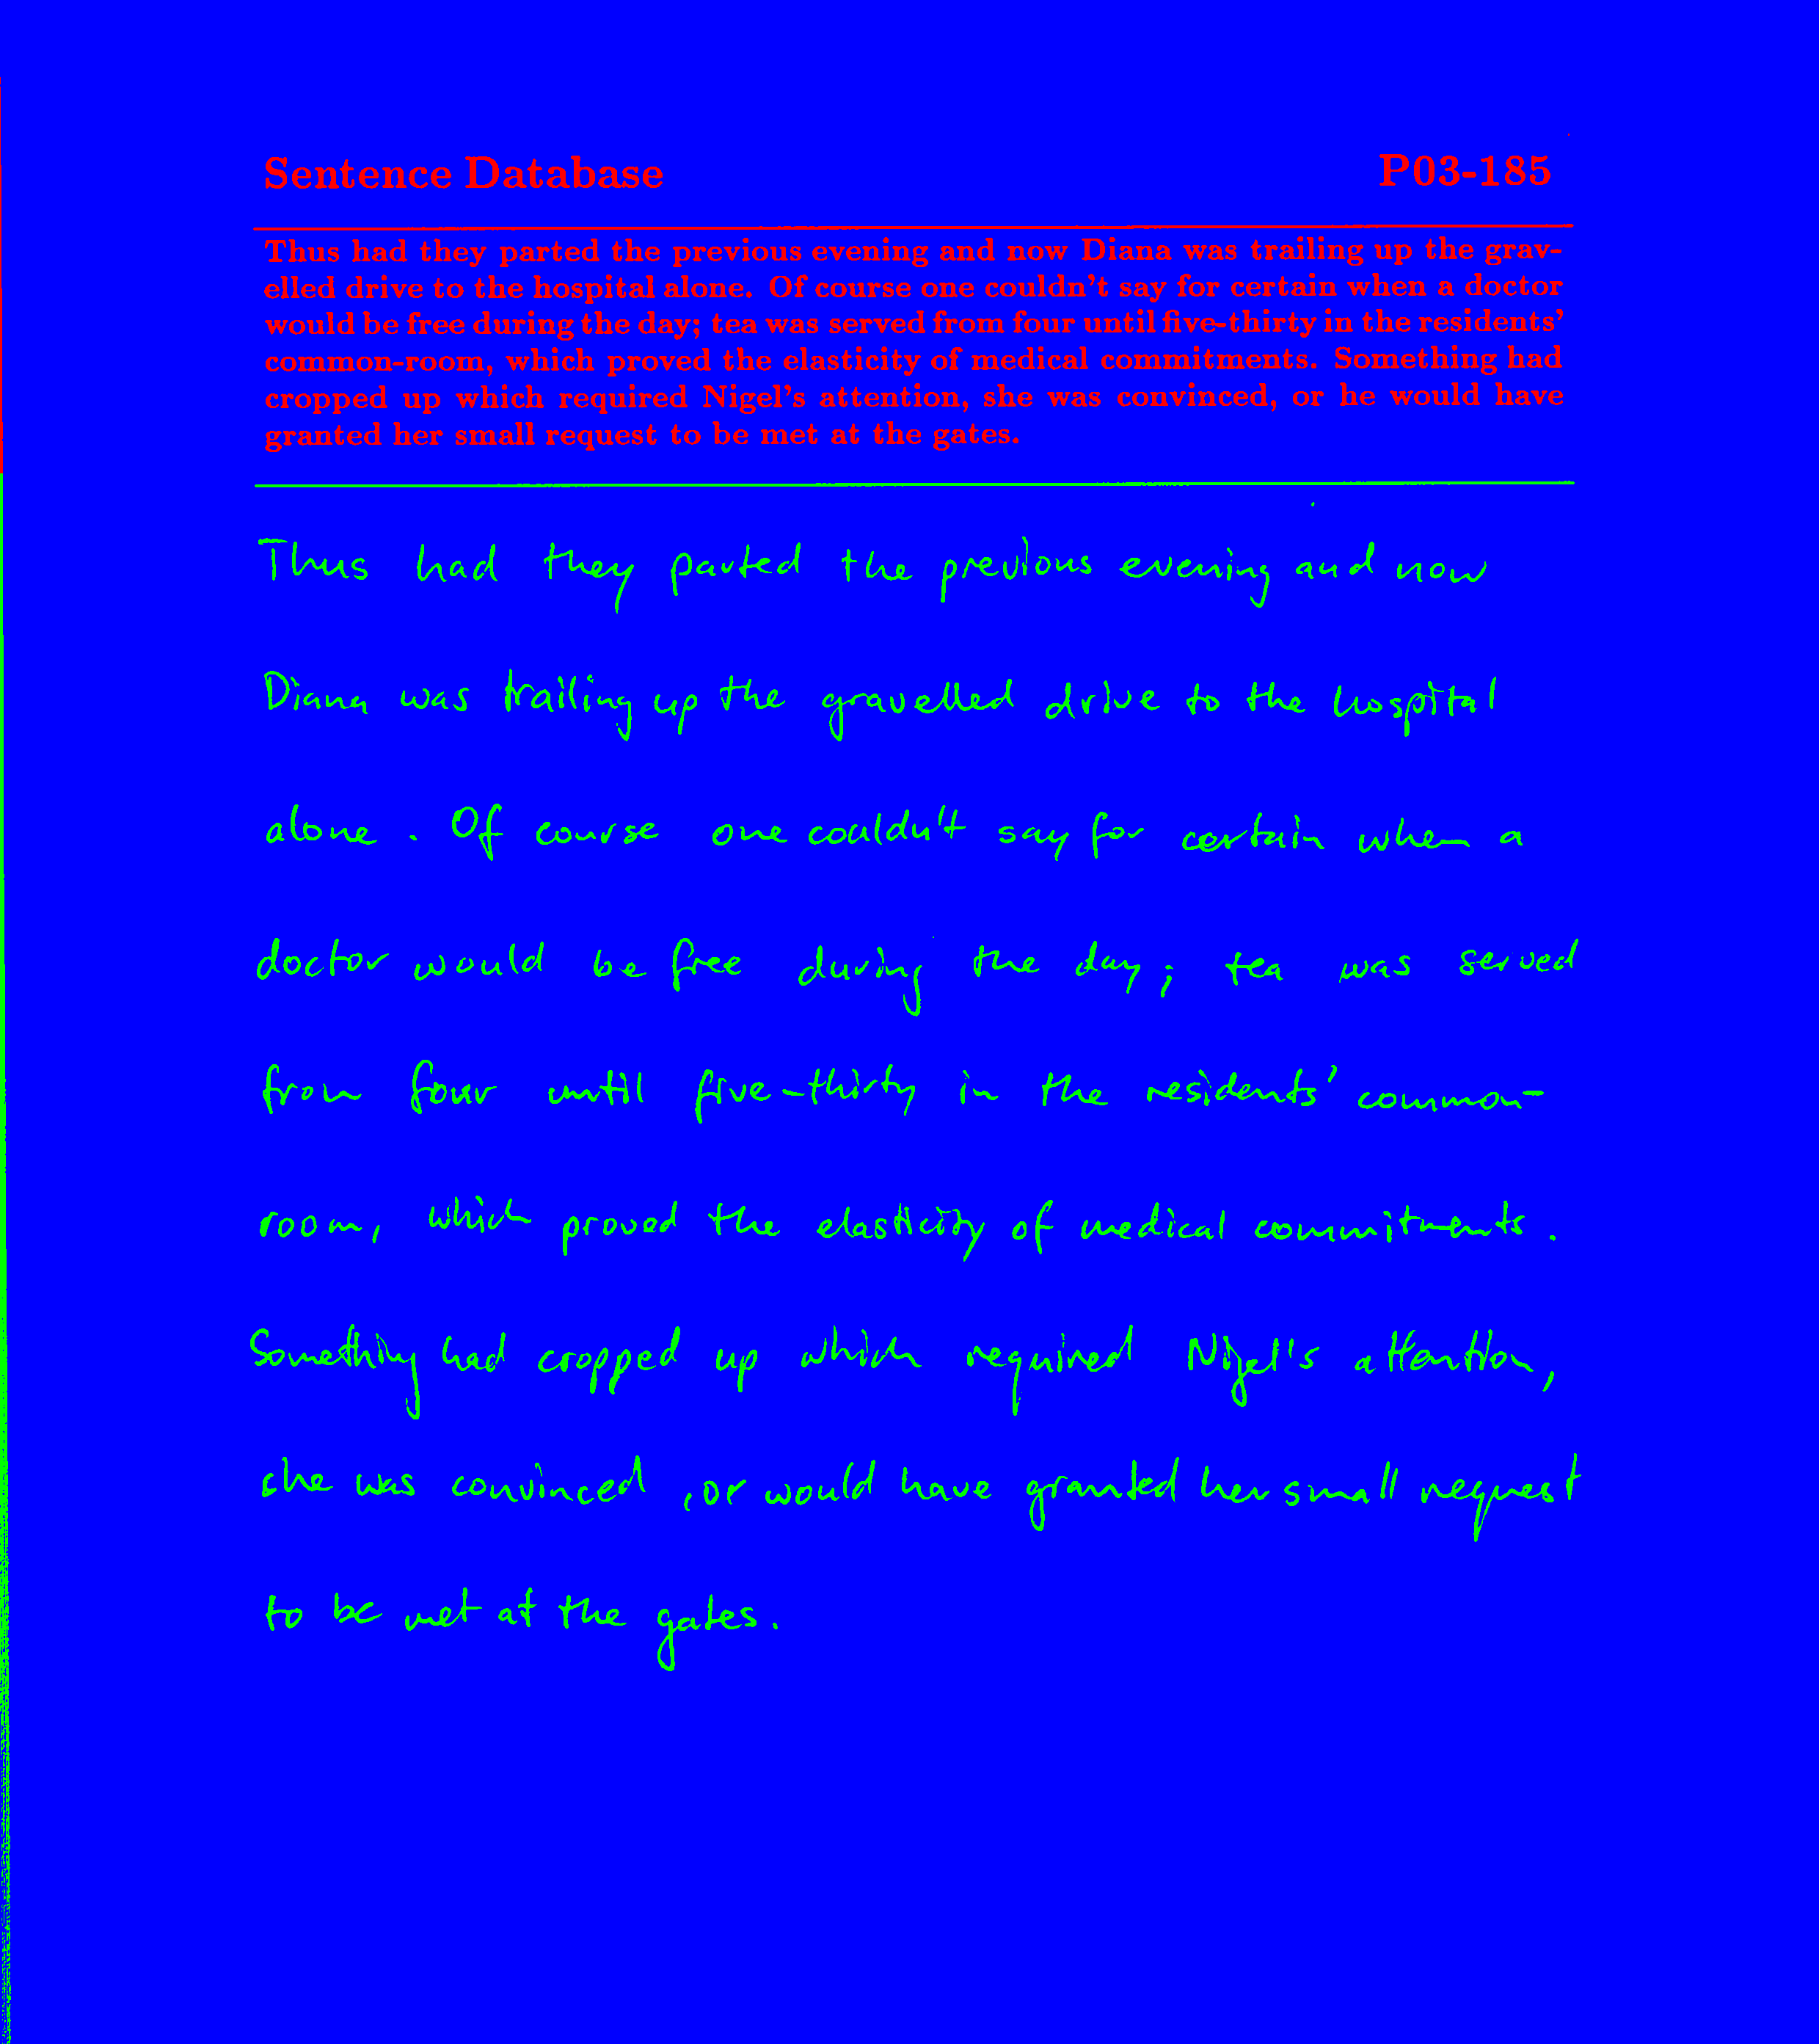 Sentence Database P03-185
Thus had they parted the previous evening and now Diana was trailing up the grav-
elled drive to the hospital alone. Of course one couldn't say for certain when a doctor
would be free during the day; tea was served from four until five-thirty in the residents'
common-room, which proved the elasticity of medical commitments. Something had
cropped up which required Nigel's attention, she was convinced, or he would have
granted her small request to be met at the gates.
Thus had they parted the previous evening and now
Diana was trailing up the gravelled drive to the hospital
alone. Of course one couldn't say for certain when a
doctor would be free during the day; tea was served
from four until five-thirty in the residents' common-
room, which proved the elasticity of medical commitments.
Something had cropped up which required Nigel's attention,
she was convinced, or would have granted her small request
to be met at the gates.